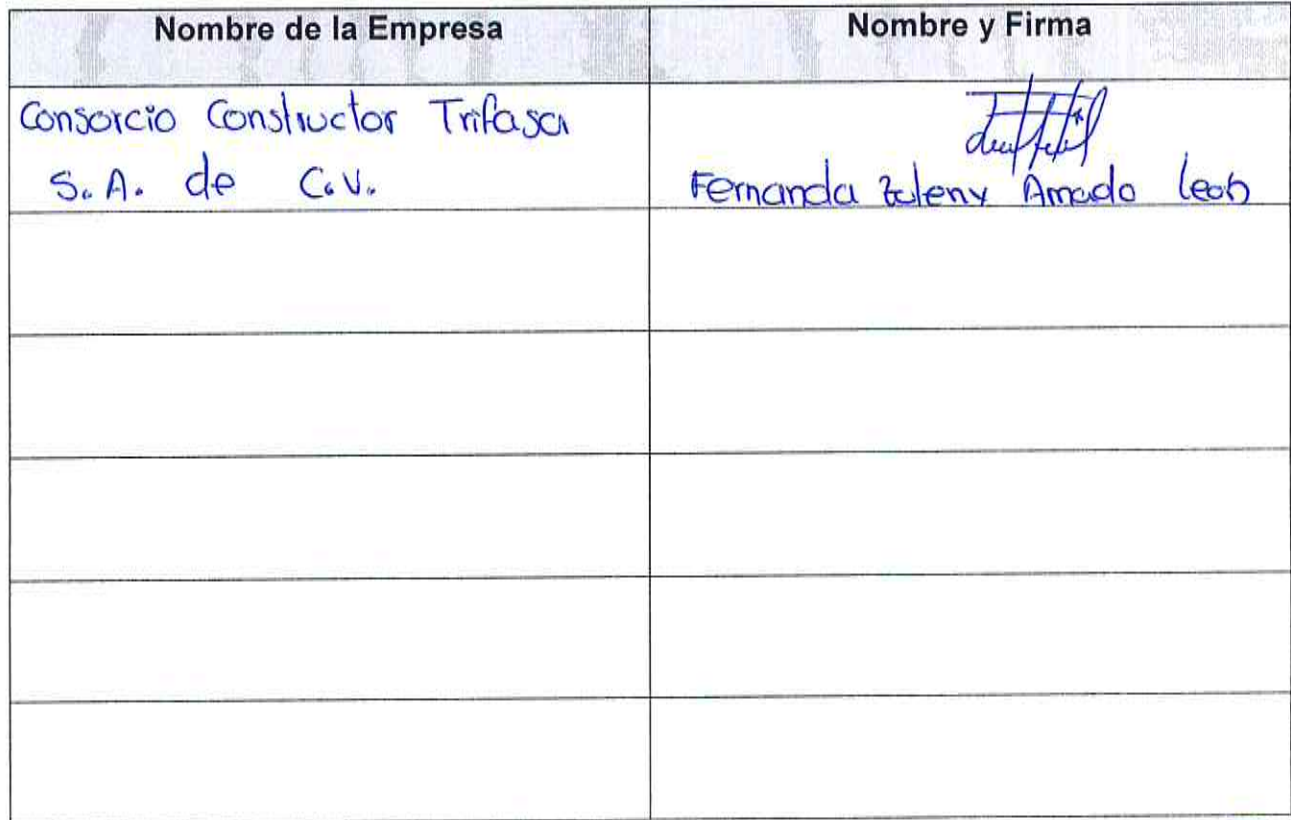 Nombre de la Empresa
Nombre y Firma
Consorcio Constructor Trifasa
S.A. de C.V.
Fernanda Zuleny Amado Leon